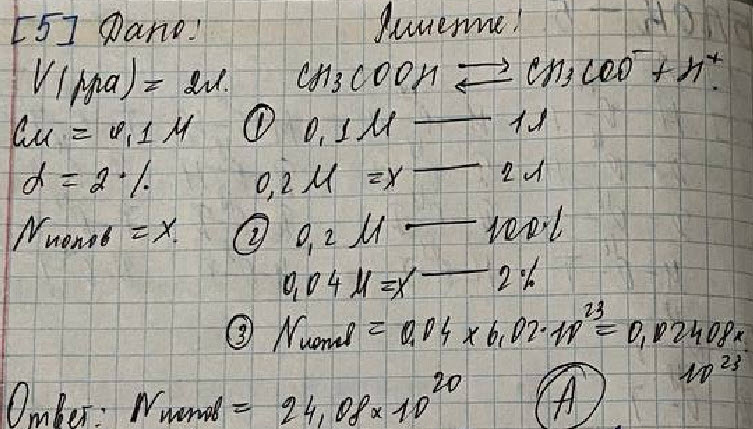 [5] Дано: Решение:
V(р-ра) = 2л. CH3COOH ⇄ CH3COO⁻ + H⁺.
Cм = 0,1 М ① 0,1 М — 1л
α = 2% 0,2 М = x — 2л
Nионов = x. ② 0,2 М — 100%
0,04 М = x — 2%
③ Nионов = 0,04 × 6,02·10²³ = 0,02408×
10²³
Ответ: Nионов = 24,08×10²⁰ А